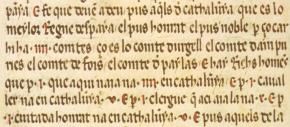 paỹa E fe que deuẽ a teu pus aq̃ls ð cathalũya que es lo
meylor Regne deſpaỹa. el pus honrat el pus noble p ço car
hi ha .iiij. comtes ço es lo comte durgell el comte dampu
ries el comte de foix el comte ð paylas E hay Richs homeẏ
que p .i. que aqui na na na .iiij. en cathalũya E p .i. caual
ler na en cathalũya .v. E p .i. clergue q̃ aci ala na .x. E p
.i. ciutada honrat na en cathalũya .v. E pus aquels de la